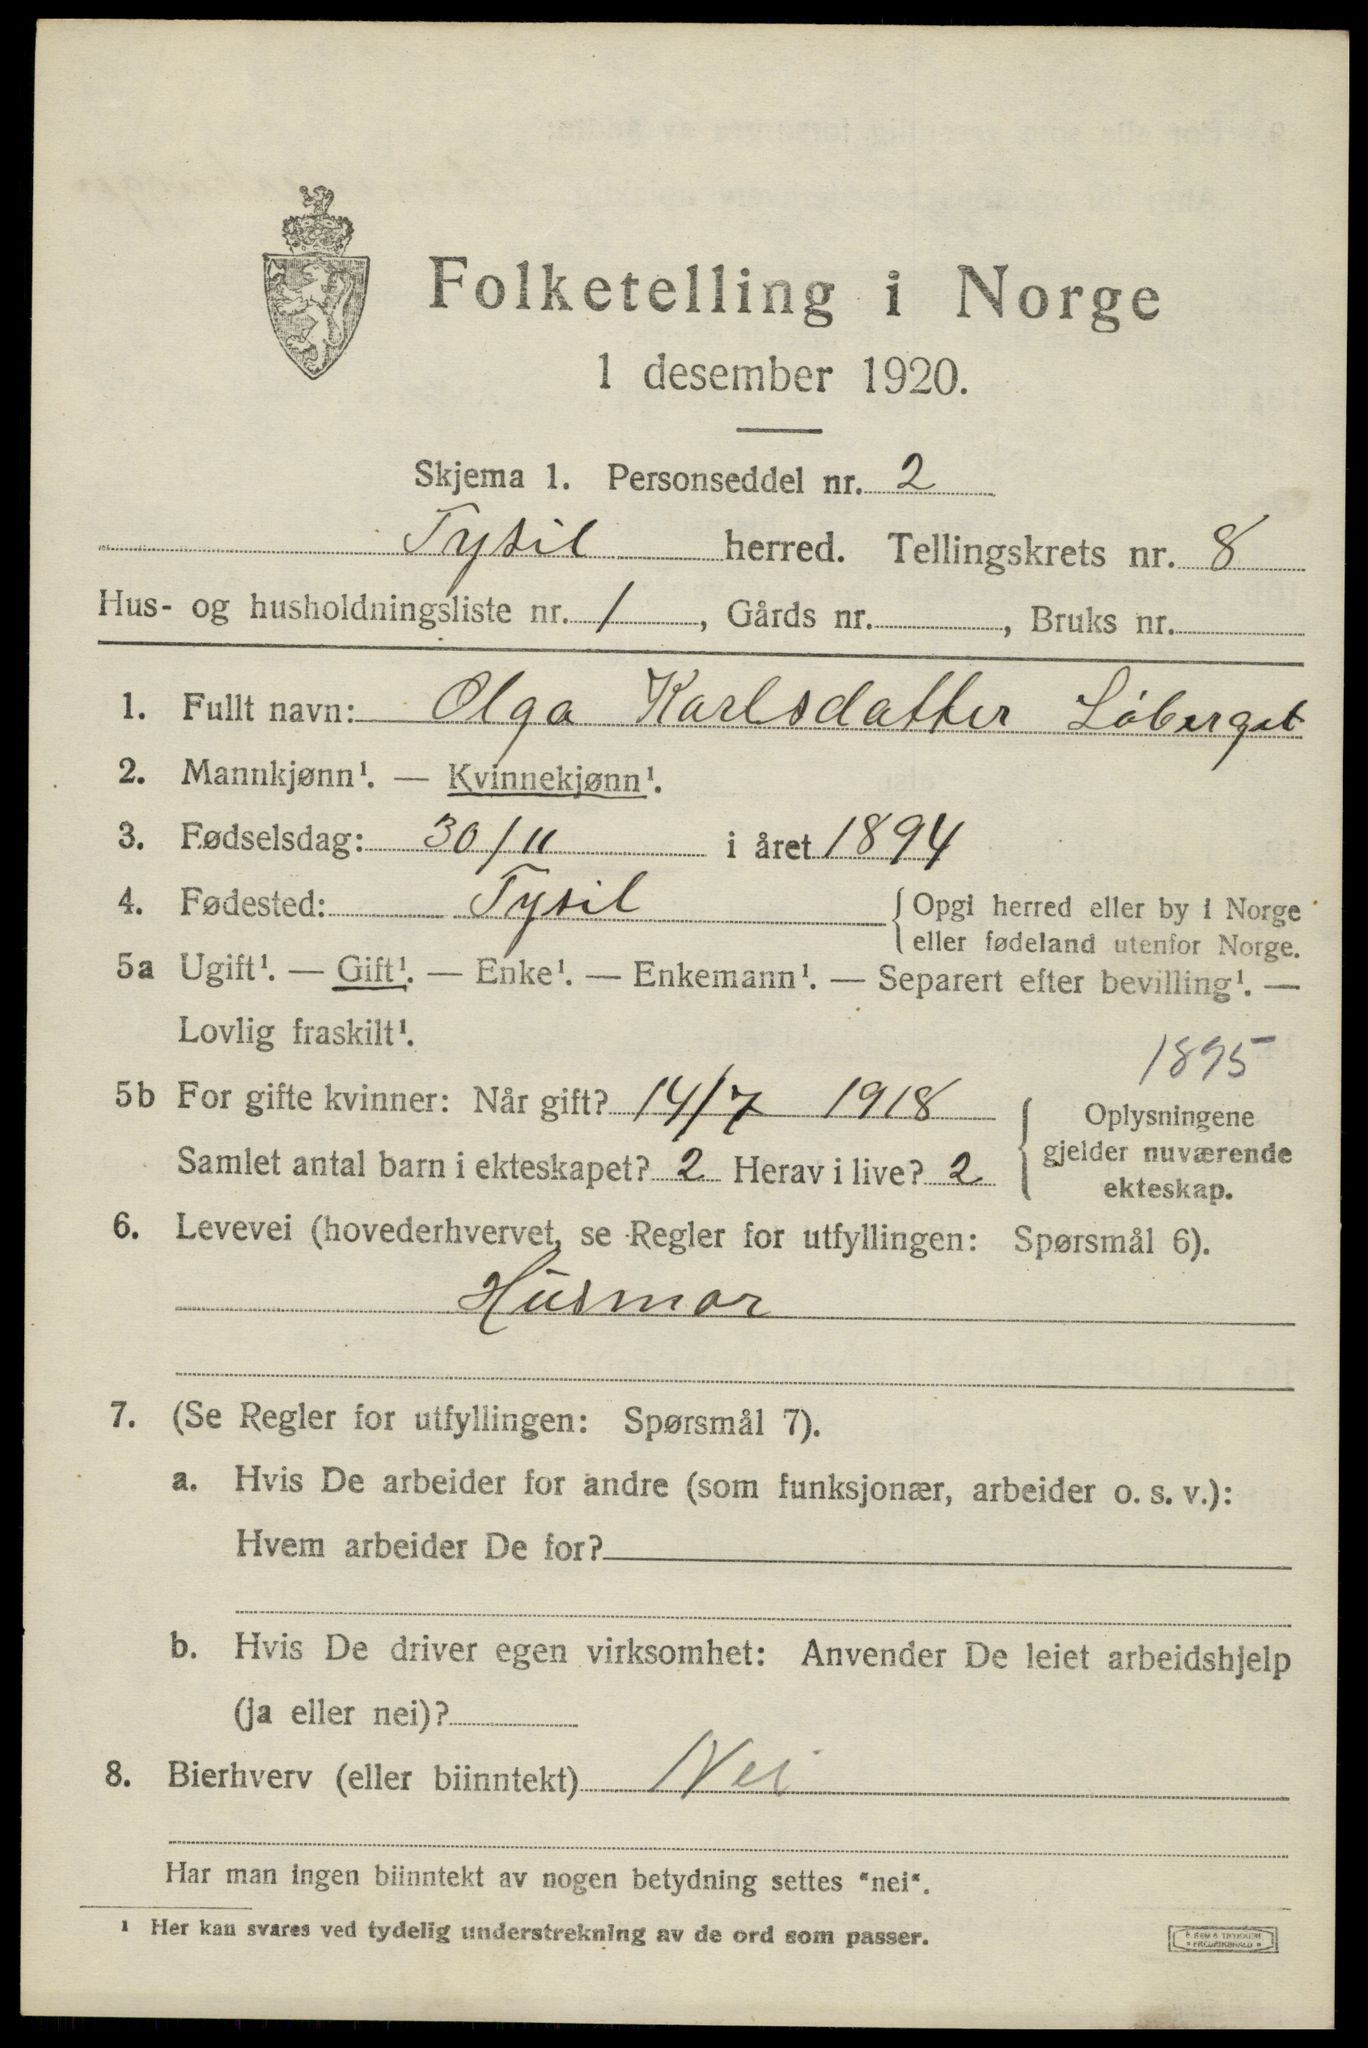 Folketelling i Norge
1 desember 1920.
Skjema 1. Personseddel nr. 2
Tysil herred. Tellingskrets nr. 8
Hus- og husholdningsliste nr. 1, Gårds nr. , Bruks nr.
1. Fullt navn: Olga Karlsdatter Löberget
2. Mannkjønn¹. — Kvinnekjønn¹.
3. Fødselsdag: 30/11 i året 1894
4. Fødested: Tysil { Opgi herred eller by i Norge
eller fødeland utenfor Norge.
5a Ugift¹. — Gift¹. — Enke¹. — Enkemann¹. — Separert efter bevilling¹. —
Lovlig fraskilt¹.
1895
5b For gifte kvinner: Når gift? 14/7 1918 { Oplysningene
gjelder nuværende
Samlet antal barn i ekteskapet? 2 Herav i live? 2
ekteskap.
6. Levevei (hovederhvervet, se Regler for utfyllingen: Spørsmål 6).
Husmor
7. (Se Regler for utfyllingen: Spørsmål 7).
a. Hvis De arbeider for andre (som funksjonær, arbeider o. s. v.):
Hvem arbeider De for?
b. Hvis De driver egen virksomhet: Anvender De leiet arbeidshjelp
(ja eller nei)?
8. Bierhverv (eller biinntekt) Nei
Har man ingen biinntekt av nogen betydning settes "nei".
¹ Her kan svares ved tydelig understrekning av de ord som passer.